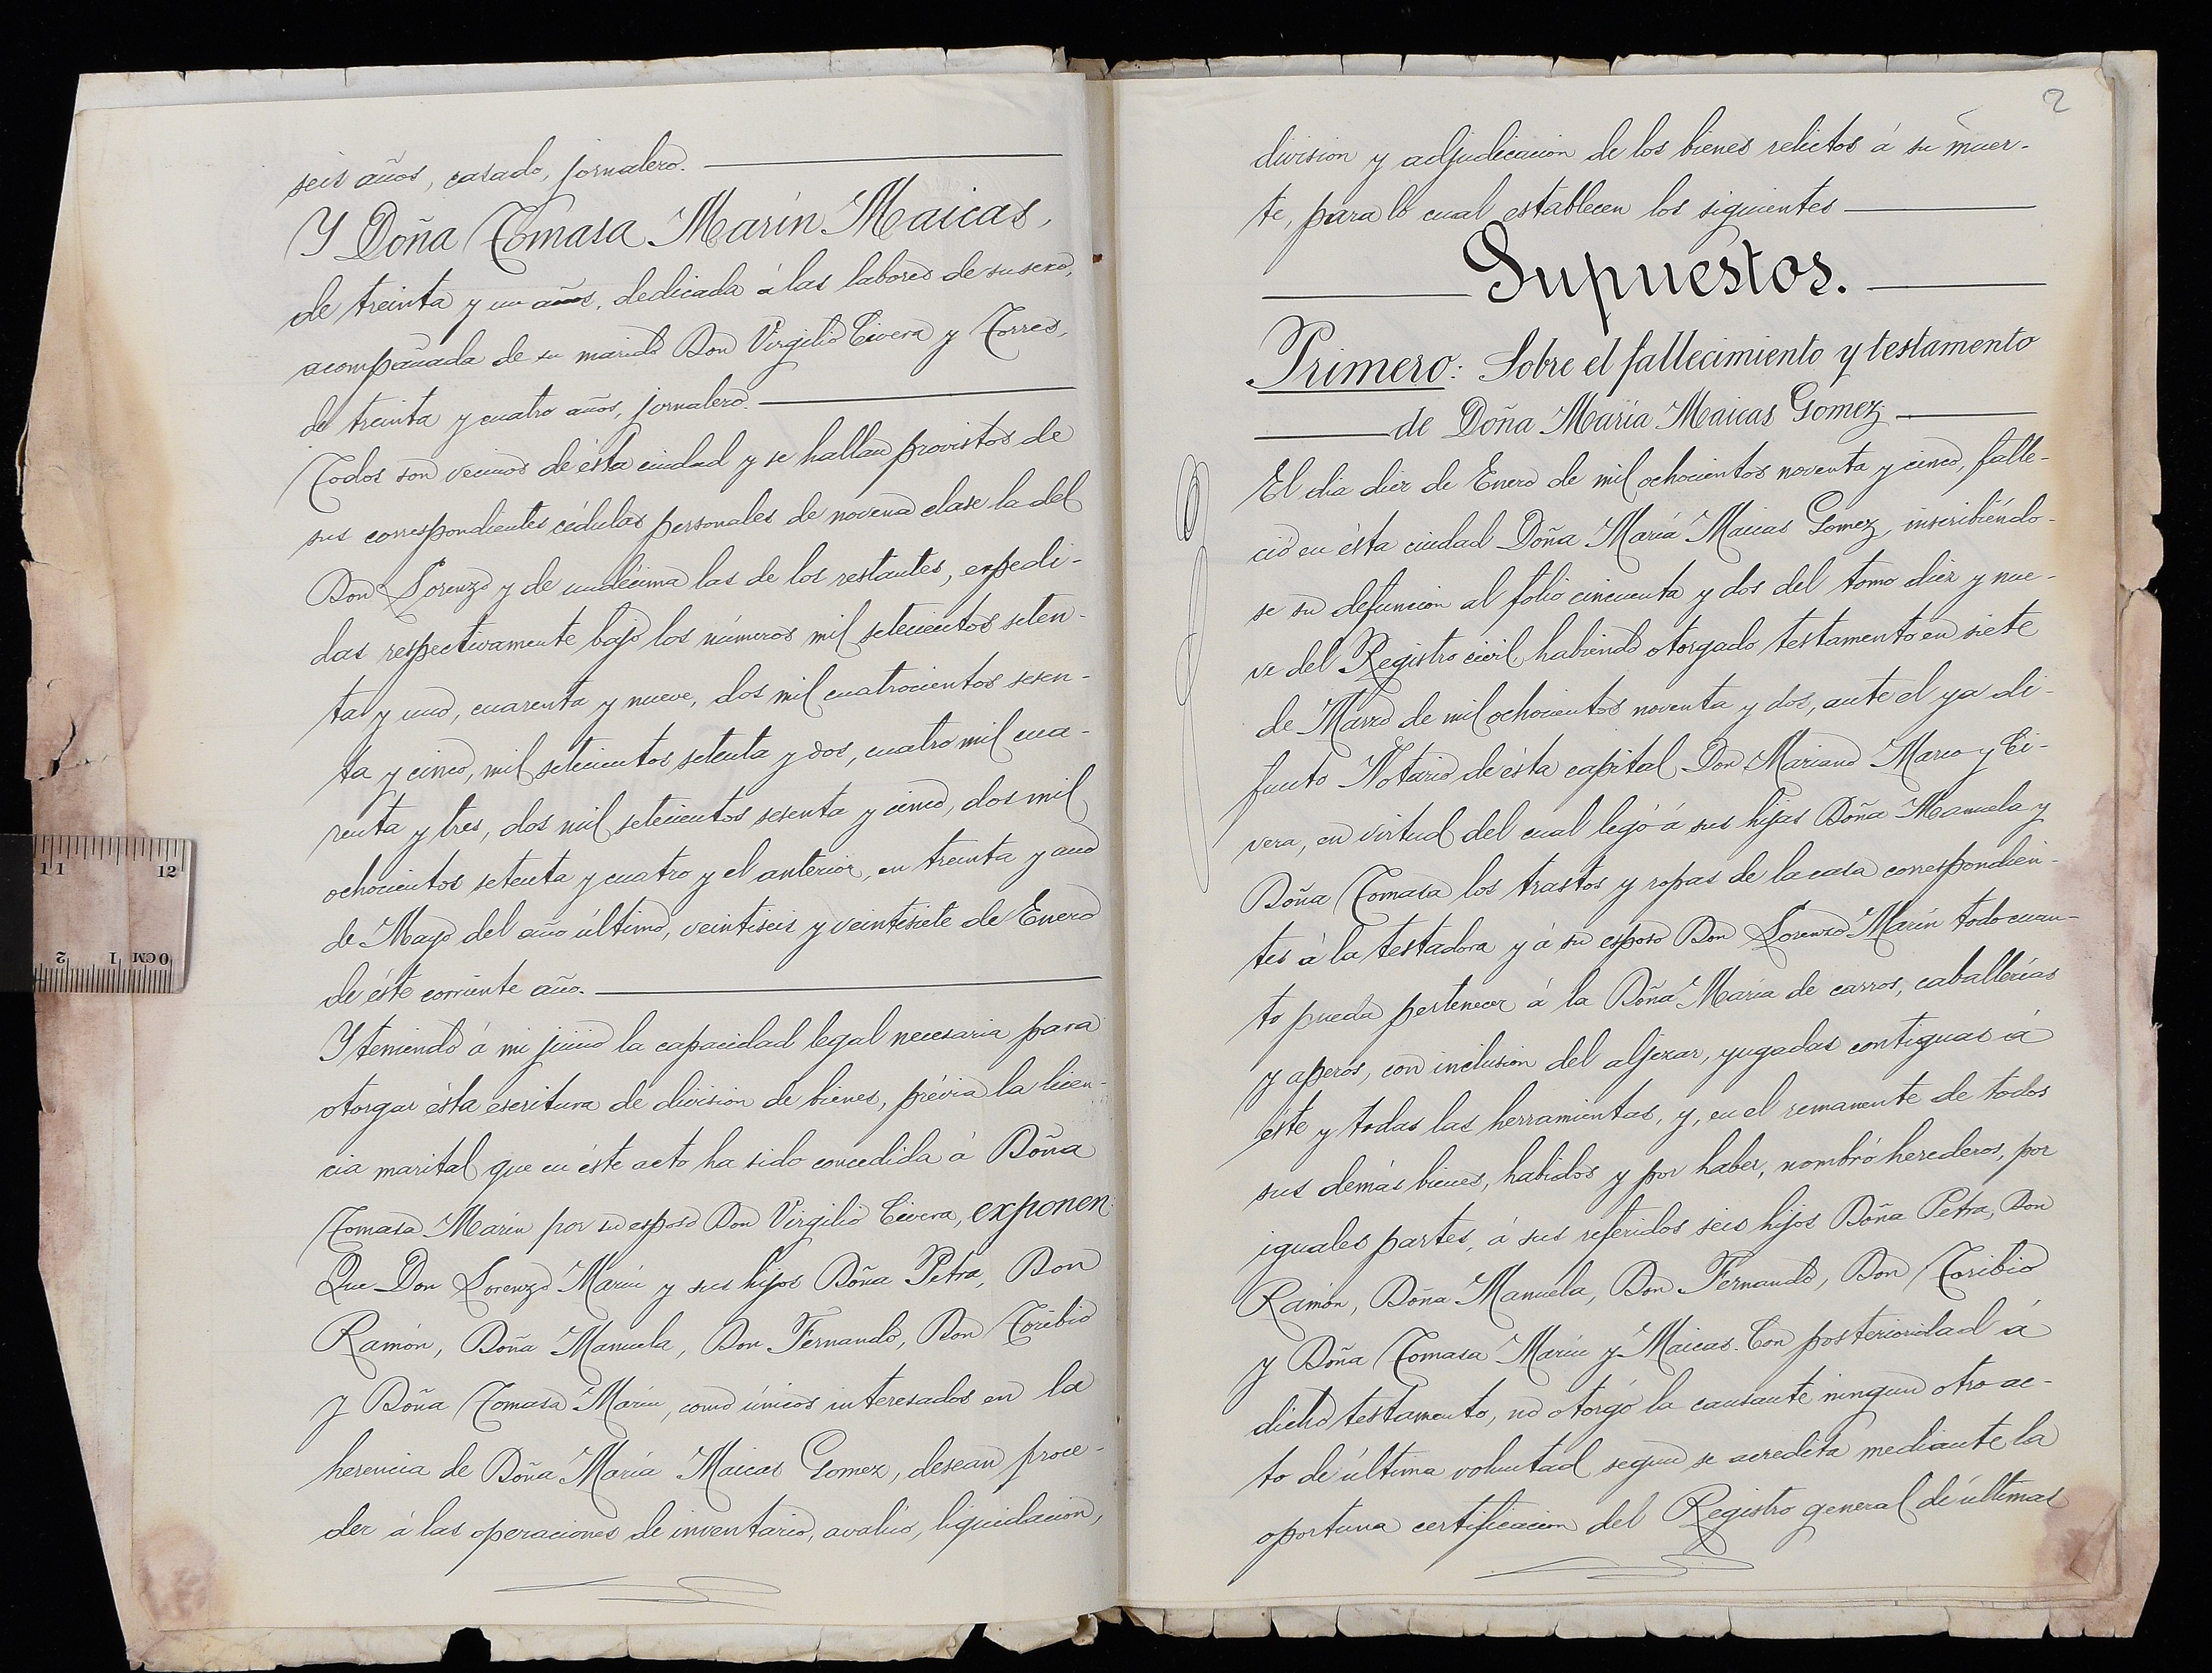 seis años, casado, jornalero.
Y Doña Tomasa Marín Maicas,
de treinta y un años, dedicada á las labores de su sexo,
acompañada de su marido Don Virgilio Civera y Torres,
de treinta y cuatro años, jornalero.
Todos son vecinos de ésta ciudad y se hallan provistos de
sus correspondientes cédulas personales de novena clase la del
Don Lorenzo y de undécima las de los restantes, expedi-
das respectivamente bajo los números mil setecientos seten-
ta y uno, cuarenta y nueve, dos mil cuatrocientos sesen-
ta y cinco, mil setecientos setenta y dos, cuatro mil cua-
renta y tres, dos mil setecientos sesenta y cinco, dos mil
ochocientos setenta y cuatro y el anterior, en treinta y uno
de Mayo del año último, veintiseis y veintisiete de Enero
de éste corriente año.
Y teniendo á mi juicio la capacidad legal necesaria para
otorgar ésta escritura de division de bienes, prévia la licen-
cia marital que en éste acto ha sido concedida á Doña
Tomasa Marín por su esposo Don Virgilio Civera, exponen:
Que Don Lorenzo Marín y sus hijos Doña Petra, Don
Ramón, Doña Manuela, Don Fernando, Don Toribio
y Doña Tomasa Marín, como únicos interesados en la
herencia de Doña María Maicas Gomez, desean proce-
der á las operaciones de inventario, avalúo, liquidacion,
2
division y adjudicacion de los bienes relictos á su muer-
te, para lo cual establecen los siguientes
Supuestos.
Primero: Sobre el fallecimiento y testamento
de Doña María Maicas Gomez
El dia diez de Enero de mil ochocientos noventa y cinco, falle-
ció en ésta ciudad Doña María Maicas Gomez, inscribiéndo-
se su defuncion al folio cincuenta y dos del tomo diez y nue-
ve del Registro civil, habiendo otorgado testamento en siete
de Marzo de mil ochocientos noventa y dos, ante el ya di-
funto Notario de ésta capital Don Mariano Marco y Ci-
vera, en virtud del cual legó á sus hijas Doña Manuela y
Doña Tomasa los trastos y ropas de la casa correspondien-
tes á la testadora y á su esposo Don Lorenzo Marín todo cuan-
to pueda pertenecer á la Doña María de carros, caballerías
y aperos, con inclusion del aljezar, yugadas contiguas á
éste y todas las herramientas, y, en el remanente de todos
sus demás bienes, habidos y por haber, nombró herederos, por
iguales partes, á sus referidos seis hijos Doña Petra, Don
Ramón, Doña Manuela, Don Fernando, Don Toribio
y Doña Tomasa Marín y Maicas. Con posterioridad á
dicho testamento, no otorgó la causante ningun otro ac-
to de última voluntad segun se acredita mediante la
oportuna certificacion del Registro general de últimas